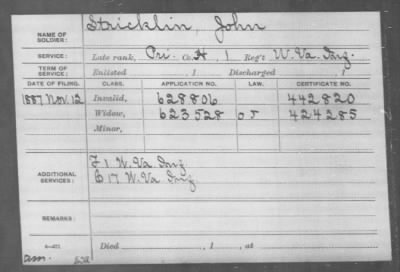 NAME OF SOLDIER: Stricklin, John
SERVICE: Late rank, Pri. Co. H, 1 Reg't W. Va. Inf.
TERM OF SERVICE: Enlisted , 1 Discharged , 1
DATE OF FILING. CLASS. APPLICATION NO. LAW. CERTIFICATE NO.
1887 Nov. 12 Invalid, 628806 442820
Widow, 623528 O J 424285
Minor,
ADDITIONAL SERVICES: F 1 W. Va Inf
C 17 W. Va Inf
REMARKS:
Died , 1 , at